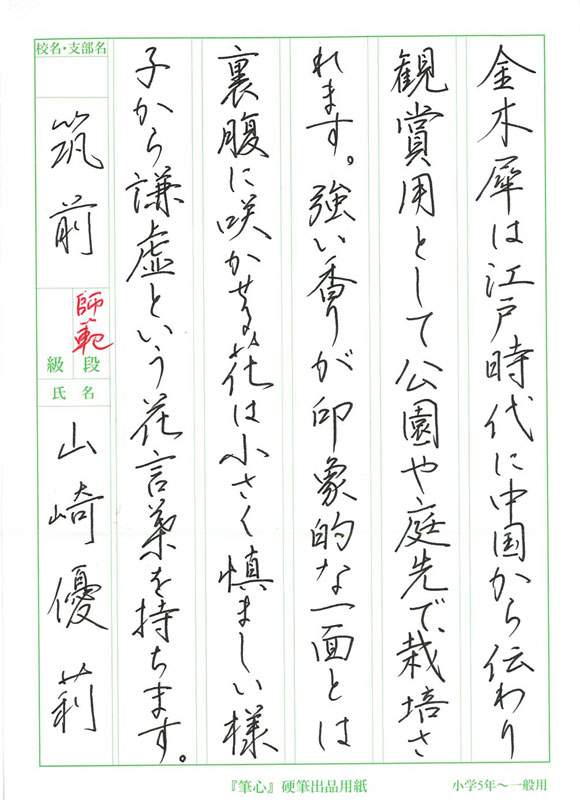 金木犀は江戸時代に中国から伝わり
観賞用として公園や庭先で栽培さ
れます。強い香りが印象的な一面とは
裏腹に咲かせる花は小さく慎ましい様
子から謙虚という花言葉を持ちます。
校名・支部名
筑前
師範
級 段
氏名
山崎優莉
『筆心』硬筆出品用紙
小学5年〜一般用